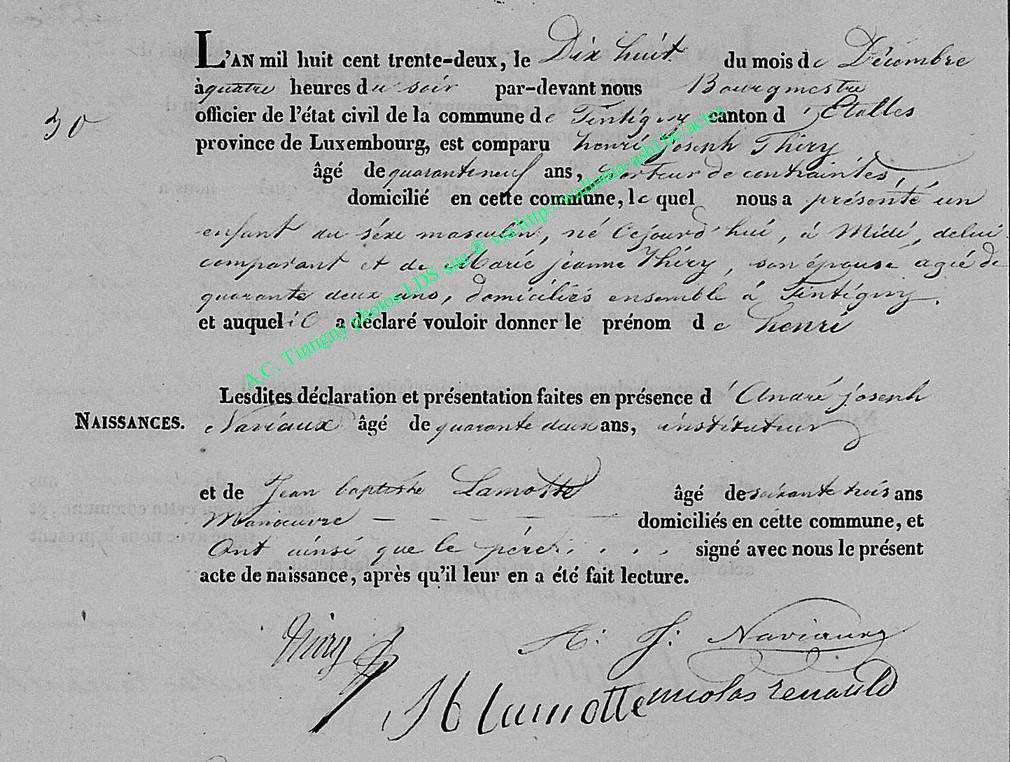 L'AN mil huit cent trente-deux, le Dix huit du mois de Décembre
à quatre heures du soir par-devant nous Bourgmestre
30 officier de l'état civil de la commune de Tintigny canton d'Etalles
province de Luxembourg, est comparu henri Joseph Thiry
âgé de quaranteneuf ans, Porteur de contraintes,
domicilié en cette commune, lequel nous a présenté un
enfant du séxe masculin, né cejourd'hui, à Midi, delui
comparant et de Marie jeanne Thiry, son épouse agée de
quarante deux ans, domiciliés ensemble à Tintigny.
et auquel il a déclaré vouloir donner le prénom de henri
Lesdites déclaration et présentation faites en présence d'André joseph
NAISSANCES. Naviaux âgé de quarante deux ans, instituteur
et de Jean baptiste Lamotte âgé de soixante trois ans
Manoeuvre – – – – – – domiciliés en cette commune, et
Ont ainsi que le père. . . . signé avec nous le présent
acte de naissance, après qu'il leur en a été fait lecture.
Thiry A: J: Naviaux
Lamotte nicolas renauld
A.C. Tintigny photos LDS site® via http://wallonia-asbl.be/actes